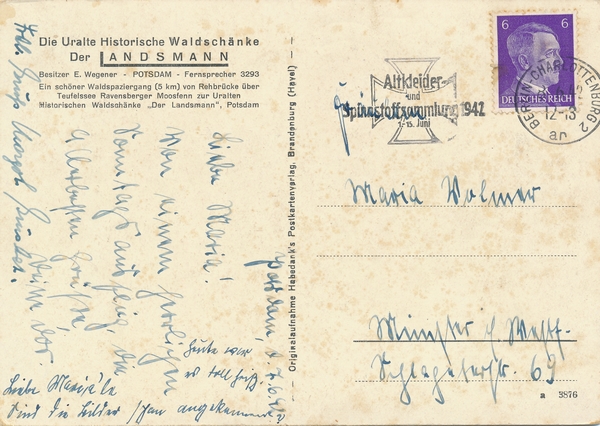 Die Uralte Historische Waldschänke
Der LANDSMANN
Besitzer E. Wegener - POTSDAM - Fernsprecher 3293
Ein schöner Waldspaziergang (5 km) von Rehbrücke über
Teufelssee Ravensberger Moosfenn zur Uralten
Historischen Waldschänke „Der Landsmann“, Potsdam
Potsdam, d. 7.6.42
Liebe Maria!
Von einem herrlichen
Sonntagsausflug die
allerbesten Grüße
Deine
Heute war
es toll heiß.
Liebe
Sind die Bilder schon angekommen?
Originalaufnahme Hebedank's Postkartenverlag, Brandenburg (Havel)
Altkleider-
und
Spinnstoffsammlung 1942
1.-15. Juni
6 6
DEUTSCHES REICH
BERLIN-CHARLOTTENBURG 2
12-13
an
Fräulein
Maria Volmer
Münster i/ Westf.
Schlageterstr. 69
a 3876